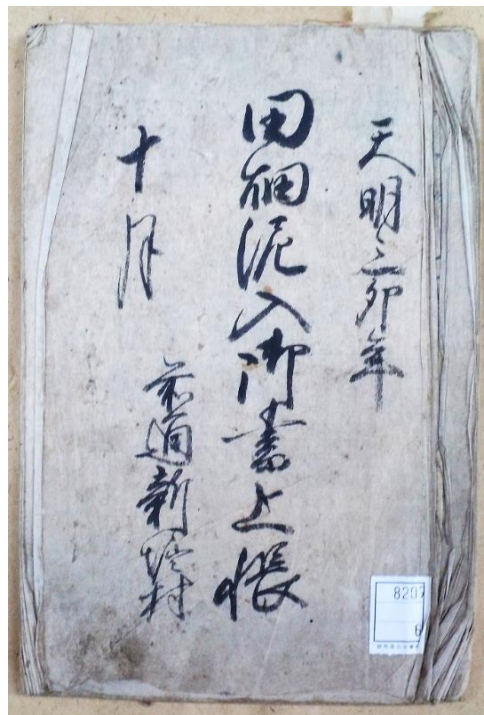 天明三卯年
田畑泥入御書上帳
十月
新堀村
8207
6